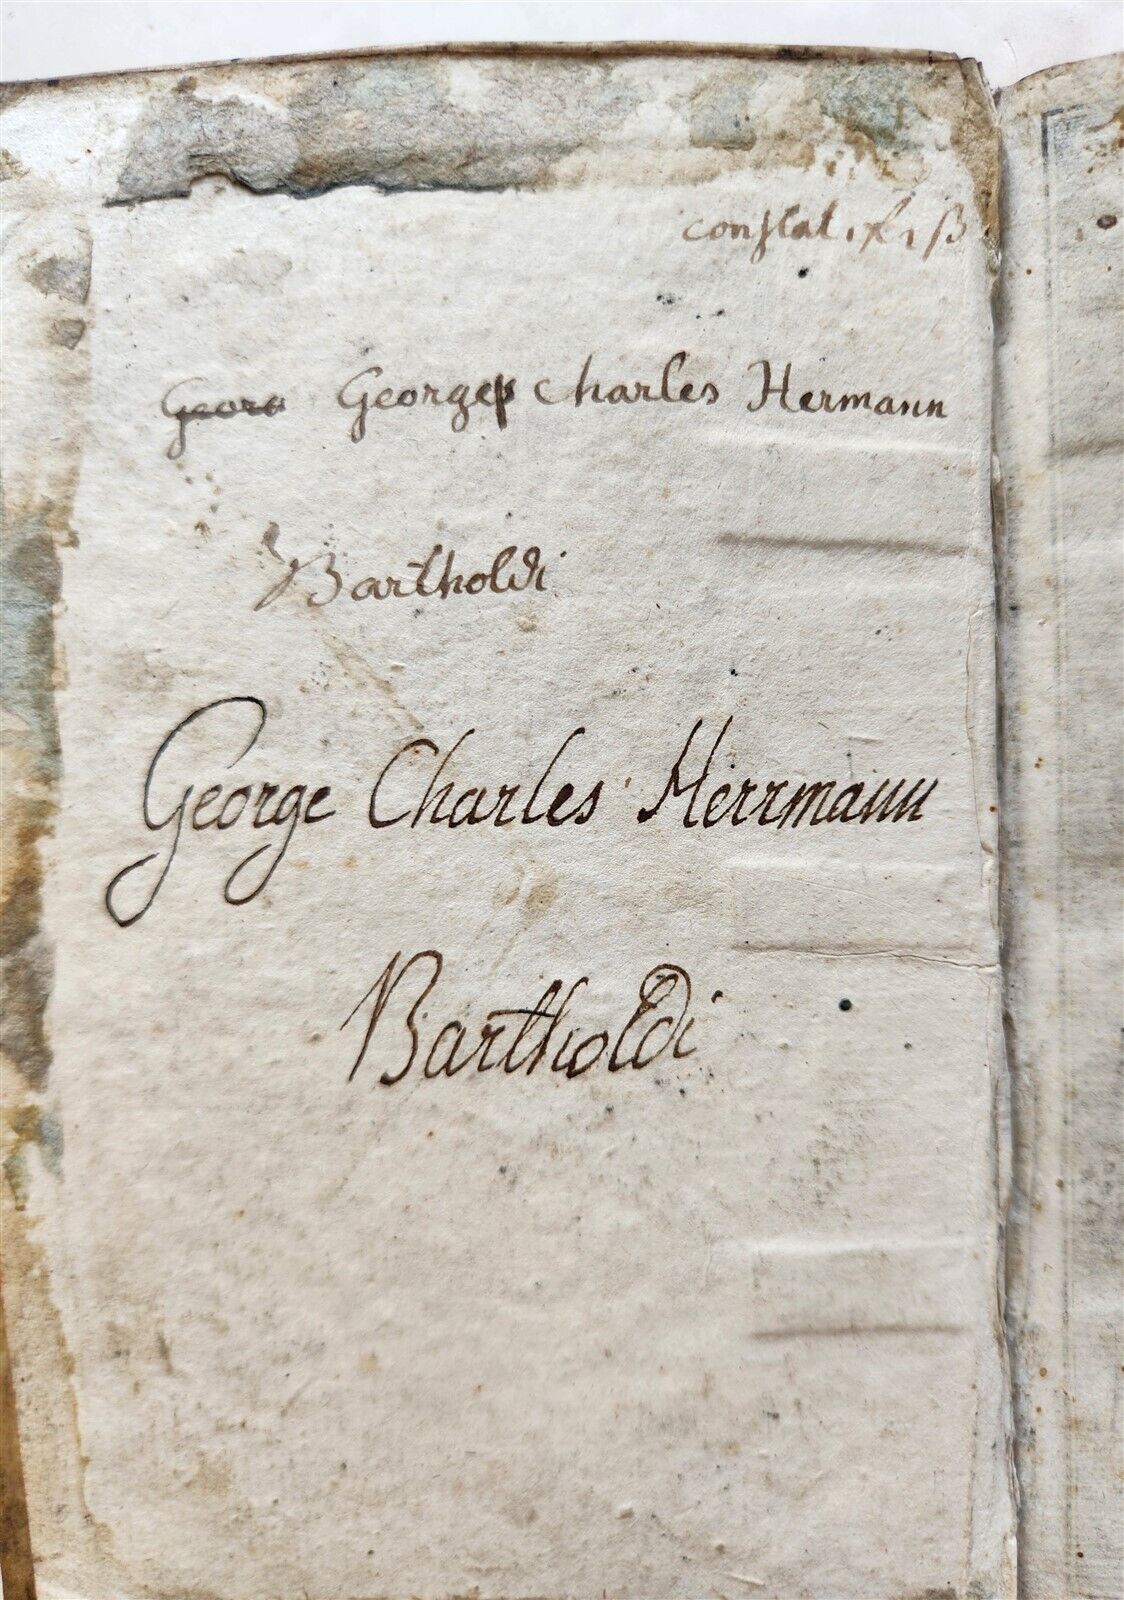 constat
Georg George Charles Hermann
Bartholdi
George Charles Herrmann
Bartholdi